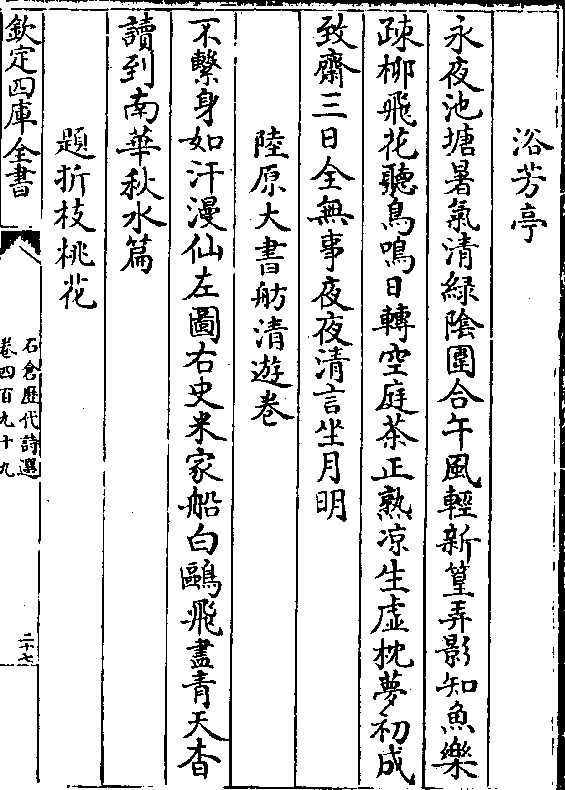 浴芳亭
永夜池塘暑氣清緑陰圍合午風輕新篁弄影知魚樂
疎栁飛花聽鳥鳴日轉空庭茶正熟凉生虚枕夢初成
致齋三日全無事夜夜清言坐月明
陸原大書舫清遊卷
不繫身如汗漫仙左圖右史米家船白鷗飛盡青天杳
讀到南華秋水篇
題折枝桃花
欽定四庫全書
石倉歴代詩選
卷四百九十九
二十七